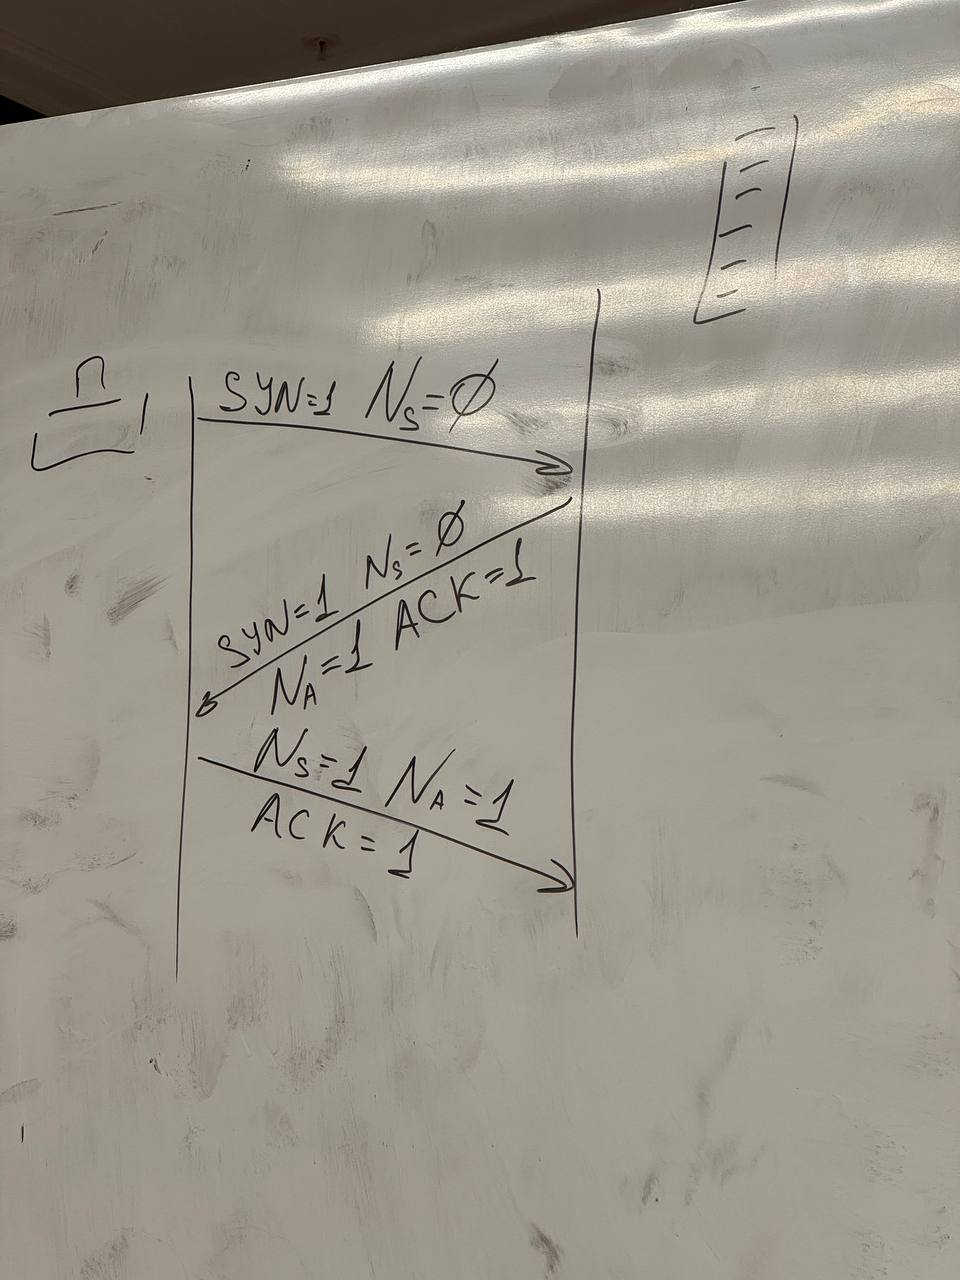 SYN=1 Ns=∅
SYN=1 Ns=∅
NA=1 ACK=1
Ns=1 NA=1
ACK=1